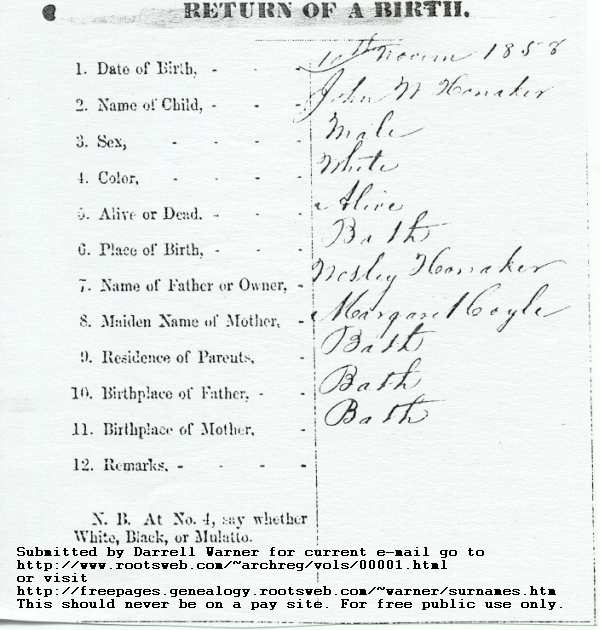 RETURN OF A BIRTH.
1. Date of Birth, - - - 10th Novem 1858
2. Name of Child, - - - John W Honaker
3. Sex, - - - - Male
4. Color, - - - - White
5. Alive or Dead. - - - Alive
6. Place of Birth, - - - Bath
7. Name of Father or Owner, - Wesley Honaker
8. Maiden Name of Mother, - Margaret Coyle
9. Residence of Parents, - Bath
10. Birthplace of Father, - - Bath
11. Birthplace of Mother, - Bath
12. Remarks. - - - -
N. B. At No. 4, say whether
White, Black, or Mulatto.
Submitted by Darrell Warner for current e-mail go to
http://www.rootsweb.com/~archreg/vols/00001.html
or visit
http://freepages.genealogy.rootsweb.com/~warner/surnames.htm
This should never be on a pay site. For free public use only.